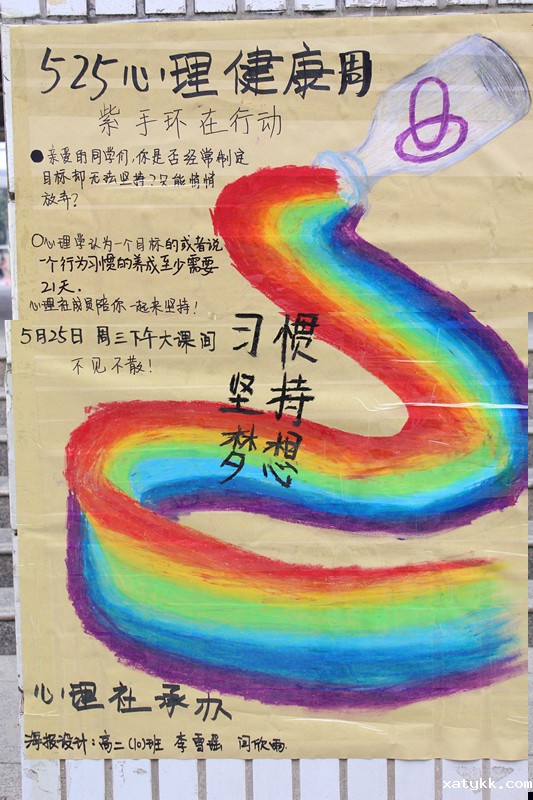 525心理健康周
紫手环在行动
●亲爱的同学们，你是否经常制定
目标却无法坚持？只能悄悄
放弃？
○心理学认为一个目标的或者说
一个行为习惯的养成至少需要
21天.
心理社成员陪你一起来坚持！
5月25日 周三下午大课间
不见不散！
习惯
坚持
梦想
心理社承办
海报设计：高二(10)班 李雪瑶 闫欣雨
xatykk.com